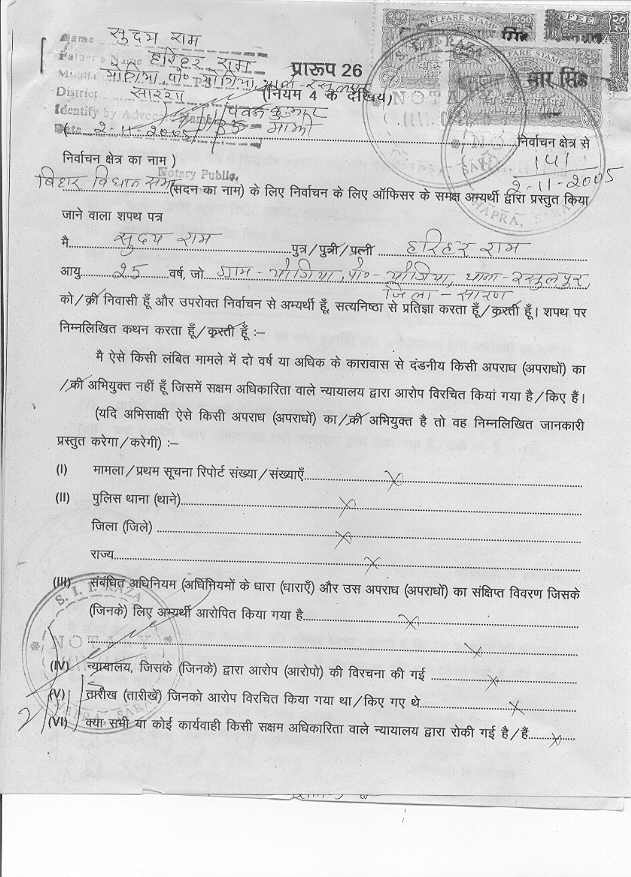 Name सुदय राम
हरिहर राम
प्रारूप 26
(नियम 4 के देखिये)
District सारण
Identify by Advocate
Date 2-11-2005
निर्वाचन क्षेत्र से
141
2-11-2005
निर्वाचन क्षेत्र का नाम )
Notary Public
बिहार विधान सभा (सदन का नाम) के लिए निर्वाचन के लिए ऑफिसर के समक्ष अभ्यर्थी द्वारा प्रस्तुत किया
जाने वाला शपथ पत्र
मै सुदय राम पुत्र/पुत्री/पत्नी हरिहर राम
आयु 25 वर्ष, जो ग्राम - योगिया, पो॰ - योगिया, थाना - रसुलपुर,
जिला - सारण
को/की निवासी हूँ और उपरोक्त निर्वाचन से अभ्यर्थी हूँ, सत्यनिष्ठा से प्रतिज्ञा करता हूँ/करती हूँ। शपथ पर
निम्नलिखित कथन करता हूँ/करती हूँ :–
मै ऐसे किसी लंबित मामले में दो वर्ष या अधिक के कारावास से दंडनीय किसी अपराध (अपराधों) का
/की अभियुक्त नहीं हूँ जिसमें सक्षम अधिकारिता वाले न्यायालय द्वारा आरोप विरचित किया गया है/किए हैं।
(यदि अभिसाक्षी ऐसे किसी अपराध (अपराधों) का/की अभियुक्त है तो वह निम्नलिखित जानकारी
प्रस्तुत करेगा/करेगी) :–
(I) मामला/प्रथम सूचना रिपोर्ट संख्या/संख्याएँ x
(II) पुलिस थाना (थाने) x
जिला (जिले) x
राज्य x
(III) संबंधित अधिनियम (अधिनियमों के धारा (धाराएँ) और उस अपराध (अपराधों) का संक्षिप्त विवरण जिसके
(जिनके) लिए अभ्यर्थी आरोपित किया गया है x
x
(IV) न्यायालय, जिसके (जिनके) द्वारा आरोप (आरोपो) की विरचना की गई x
(V) तारीख (तारीखें) जिनको आरोप विरचित किया गया था/किए गए थे x
(VI) क्या सभी या कोई कार्यवाही किसी सक्षम अधिकारिता वाले न्यायालय द्वारा रोकी गई है/हैं x